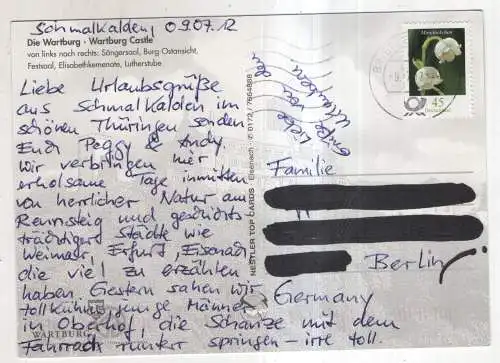 Schmalkalden, 09.07.12
Die Wartburg · Wartburg Castle
von links nach rechts: Sängersaal, Burg Ostansicht,
Festsaal, Elisabethkemenate, Lutherstube
Liebe Urlaubsgrüße
aus Schmalkalden im
schönen Thüringen senden
Euch Peggy & Andy.
Wir verbringen hier
erholsame Tage inmitten
von herrlicher Natur am
Rennsteig und geschichts
trächtigen Städte wie
Weimar, Erfurt, Eisenach
die viel zu erzählen
haben. Gestern sahen wir
tollkühne, junge Männer
in Oberhof, die Schanze mit dem
Fahrrad runter springen - irre toll.
WARTBURG
HESTLER TOP CARDS · Eisenach · ✆ 0172 / 7564868
Liebe
Grüße von den
Urlaubern.
Maiglöckchen
45
Deutschland
Familie
Berlin
Germany